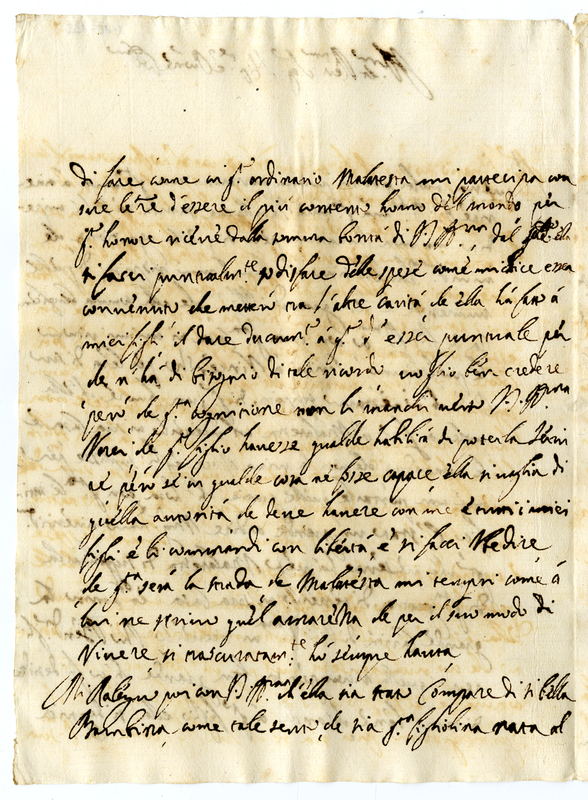 di fare come in q.to ordinario Malatesta mi partecipa con
sue let.re d'essere il più contento homo del mondo per
q.to honore riceue dalla somma bontà di V.S. Ill.ma dal
si facci puntualm.te sodisfare delle spese come mi dice esser
conuenuto che metterò tra l'altre carità che ella hà fatto à
miei figli il dare à q.to essér puntuale per
che n'hà di bisogno di tale ricordo uoglio ben credere
però che q.ta cognitione non li manchi uerso V.S. Ill.ma
Vorei che q.to figlio hauesse qualche habilità di poterla serui
re però se in qualche cosa ne fosse capace ella si uaglia di
quella autorità che deue hauere con me e tutti i miei
figli è li comandi con libertà, è si facci Vbedire
che q.ta serà la strada che Malatesta mi tempri come à
lui ne scriuo quel amarezza che per il suo modo di
Viuere sì trascuratam.te hò sempre hauta
Mi Ralegro poi con V.S. Ill.ma ch'ella sia stata Compare di sì bella
Bambina, come tale sento che sia q.ta figliolina nata al